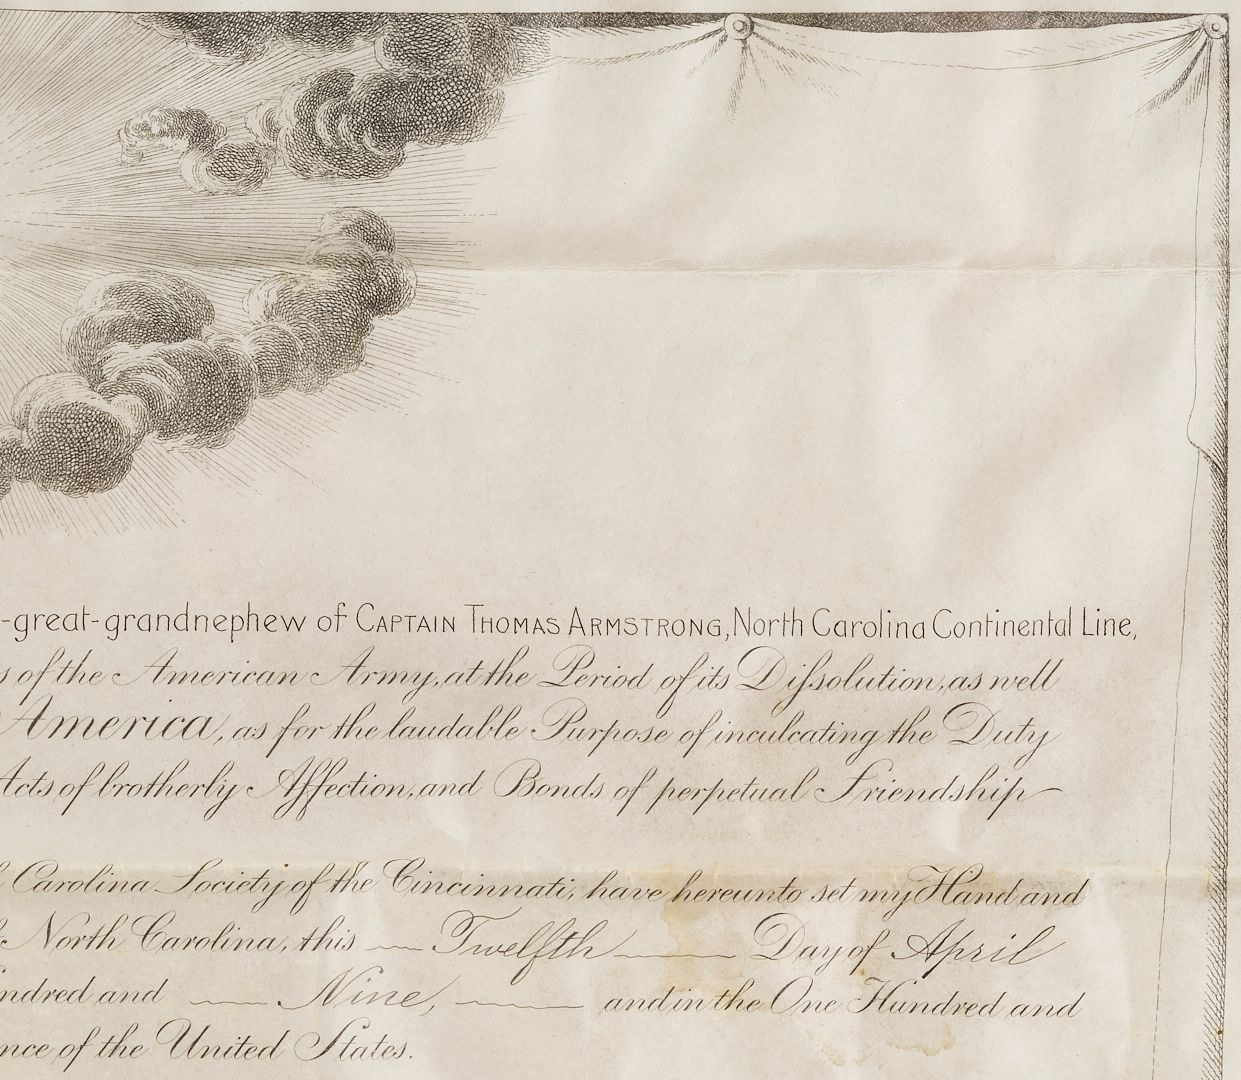 -great-grandnephew of CAPTAIN THOMAS ARMSTRONG, North Carolina Continental Line,
s of the American Army, at the Period of its Diſsolution, as well
America, as for the laudable Purpose of inculcating the Duty
Acts of brotherly Affection, and Bonds of perpetual Friendship
Carolina Society of the Cincinnati, have hereunto set my Hand and
North Carolina, this Twelfth Day of April
ndred and Nine, and in the One Hundred and
nce of the United States.